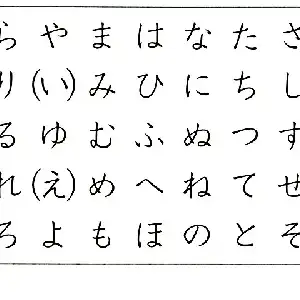 さしすせそ
たちつてと
なにぬねの
はひふへほ
まみむめも
や(い)ゆ(え)よ
らりるれろ